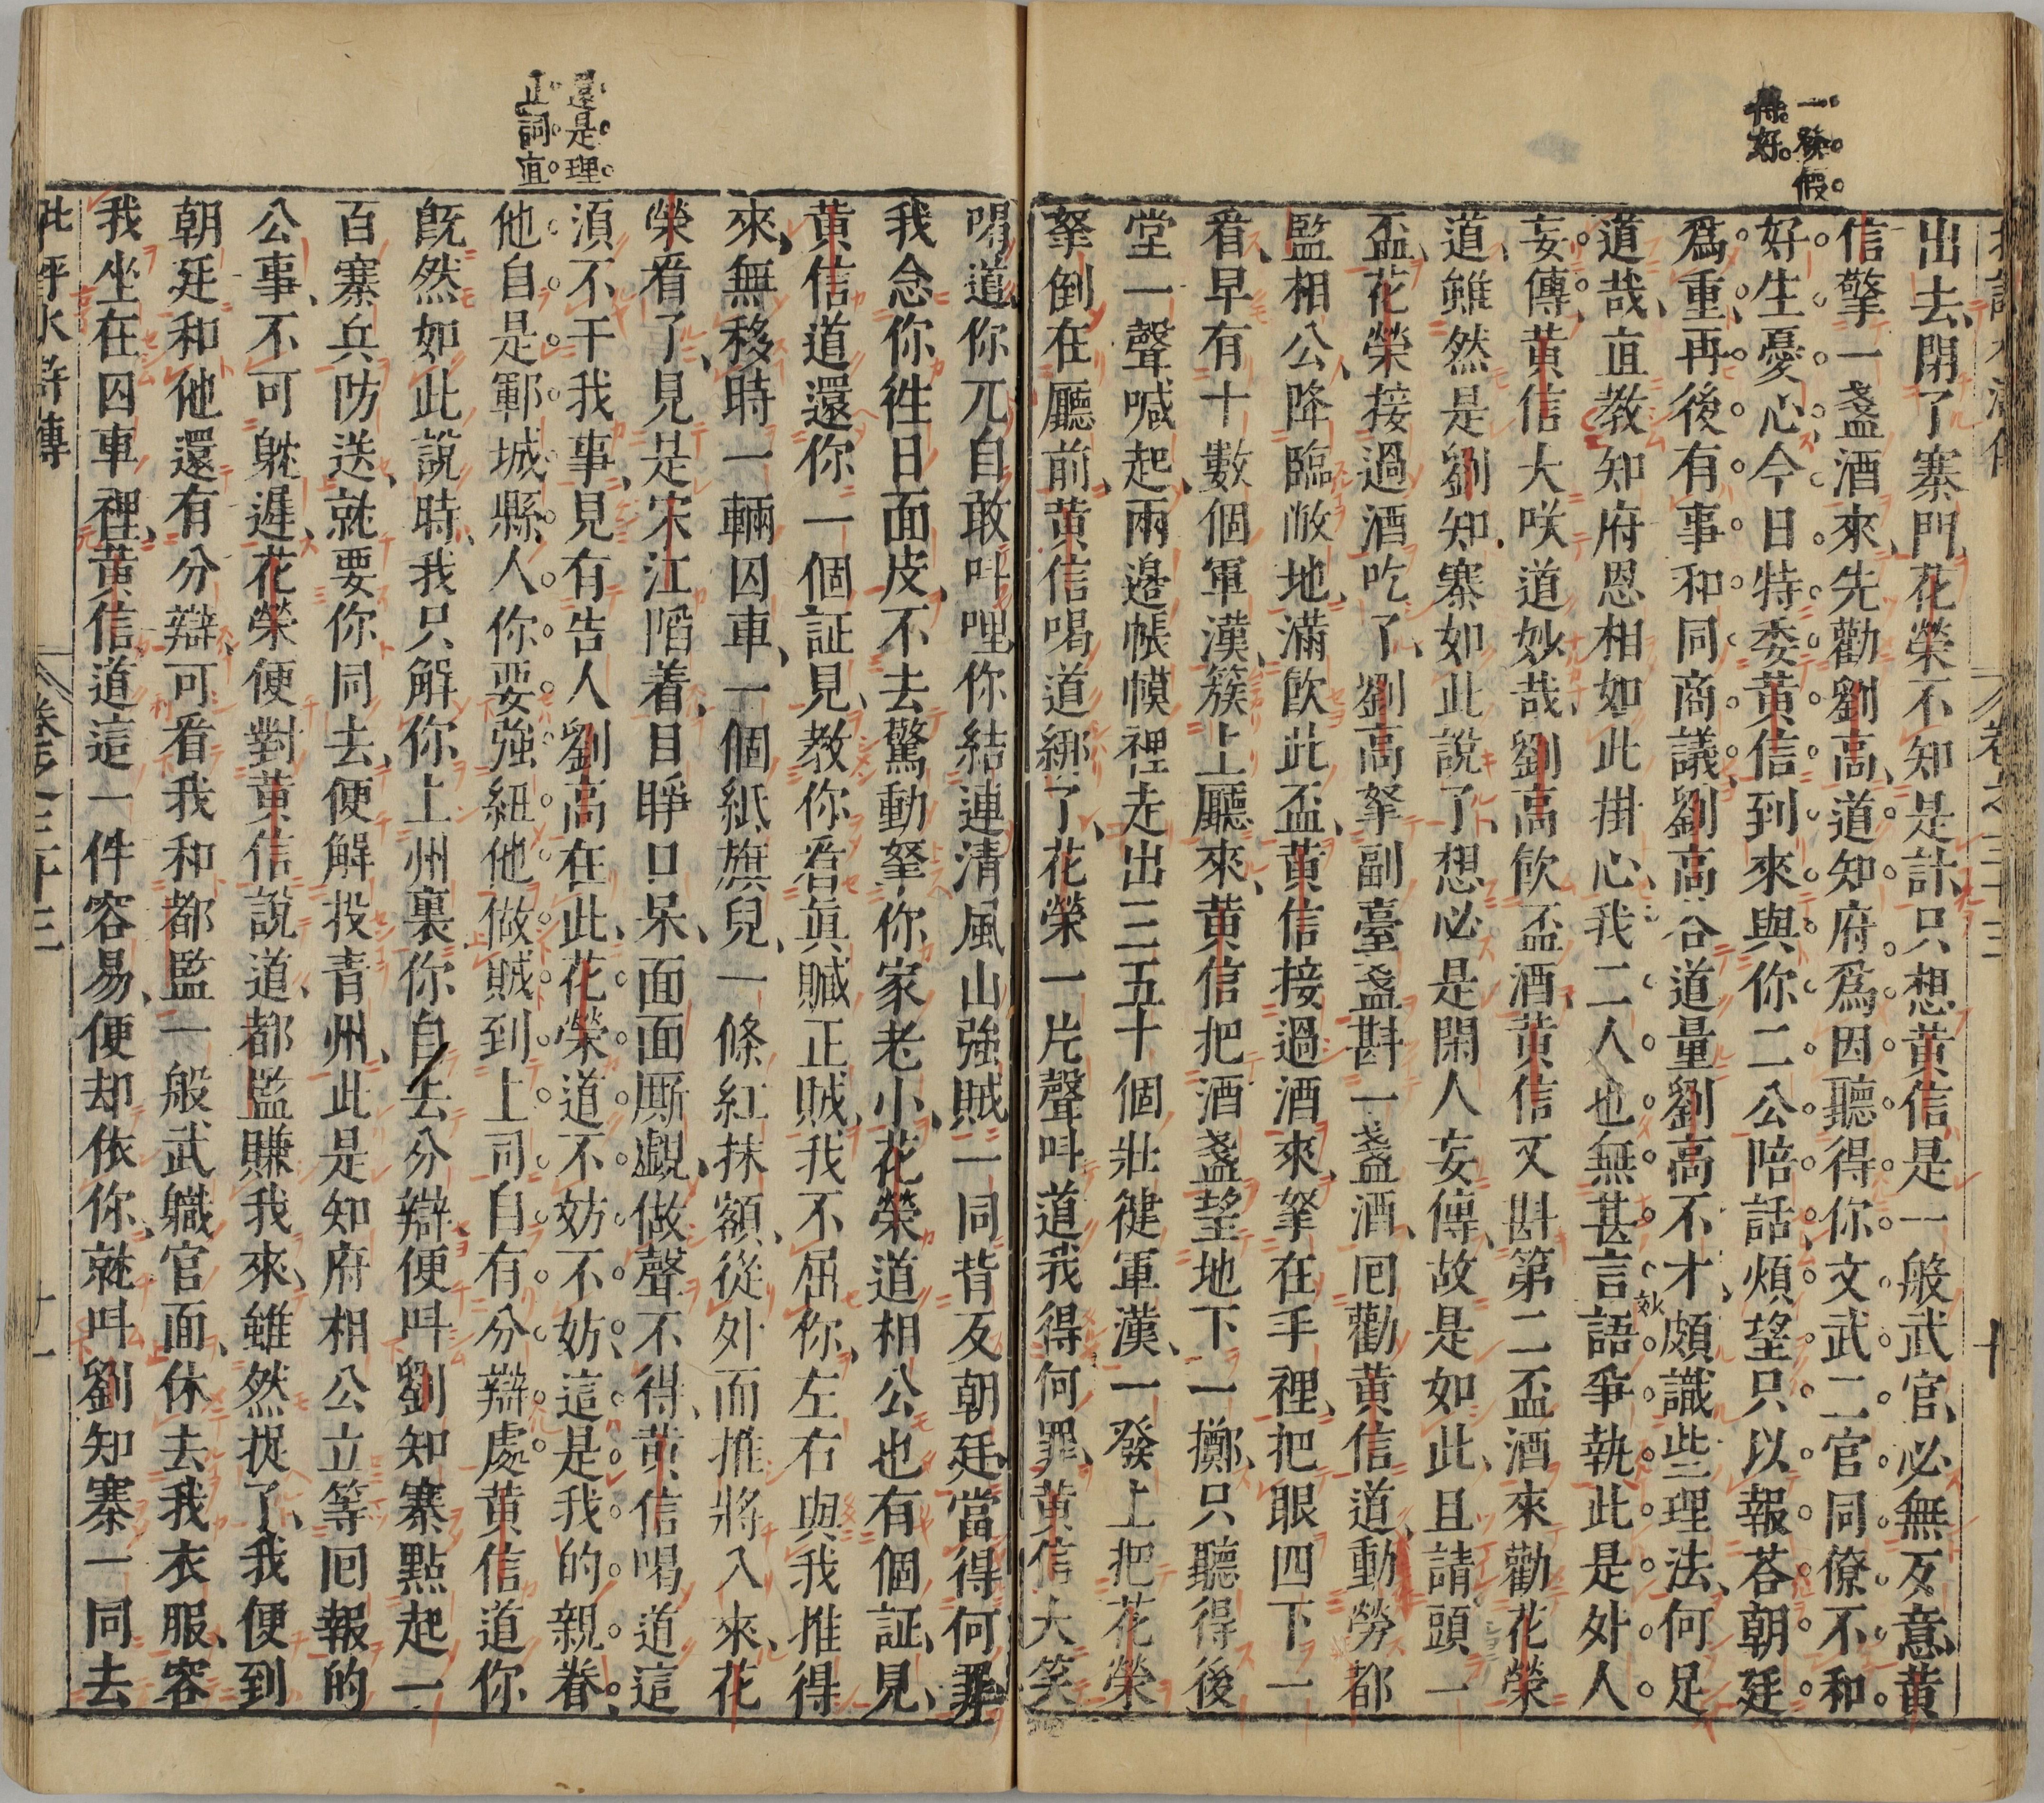 一發假
得好
出去閉了寨門花榮不知是計只想黃信是一般武官必無歹意黃
信擎一盞酒來先勸劉高道知府爲因聽得你文武二官同僚不和
好生憂心今日特委黃信到來與你二公陪話煩望只以報荅朝廷
爲重再後有事和同商議劉高荅道量劉高不才頗識些理法何足
道哉直教知府恩相如此掛心我二人也無甚言語爭執此是外人
妄傳黃信大咲道妙哉劉高飲盃酒黃信又斟第二盃酒來勸花榮
道雖然是劉知寨如此說了想必是閑人妄傳故是如此且請頭一
盃花榮接過酒吃了劉高拏副臺盞斟一盞酒囘勸黃信道動勞都
監相公降臨敝地滿飲此盃黃信接過酒來拏在手裡把眼四下一
看早有十數個軍漢簇上廳來黃信把酒盞望地下一擲只聽得後
堂一聲喊起兩邉帳幙裡走出三五十個壯健軍漢一發上把花榮
拏倒在廳前黃信喝道綁了花榮一片聲呌道我得何罪黃信大笑
還是理
正詞直
喝道你兀自敢呌哩你結連清風山強賊一同背反朝廷當得何罪
我念你徃日面皮不去驚動拏你家老小花榮道相公也有個証見
黃信道還你一個証見教你看眞贓正賊我不屈你左右與我推得
來無移時一輛囚車一個紙旗兒一條紅抹額從外面推將入來花
榮看了見是宋江陷着目睜口呆面面厮覷做聲不得黃信喝道這
須不干我事見有告人劉高在此花榮道不妨不妨這是我的親眷
他自是鄆城縣人你要強紐他做賊到上司自有分辯處黃信道你
旣然如此說時我只解你上州裏你自去分辯便呌劉知寨點起一
百寨兵防送就要你同去便解投青州此是知府相公立等囘報的
公事不可躭遲花榮便對黃信說道都監賺我來雖然捉了我便到
朝廷和他還有分辯可看我和都監一般武職官面休去我衣服容
我坐在囚車裡黃信道這一件容易便却依你就呌劉知寨一同去
卷之三十三
十一